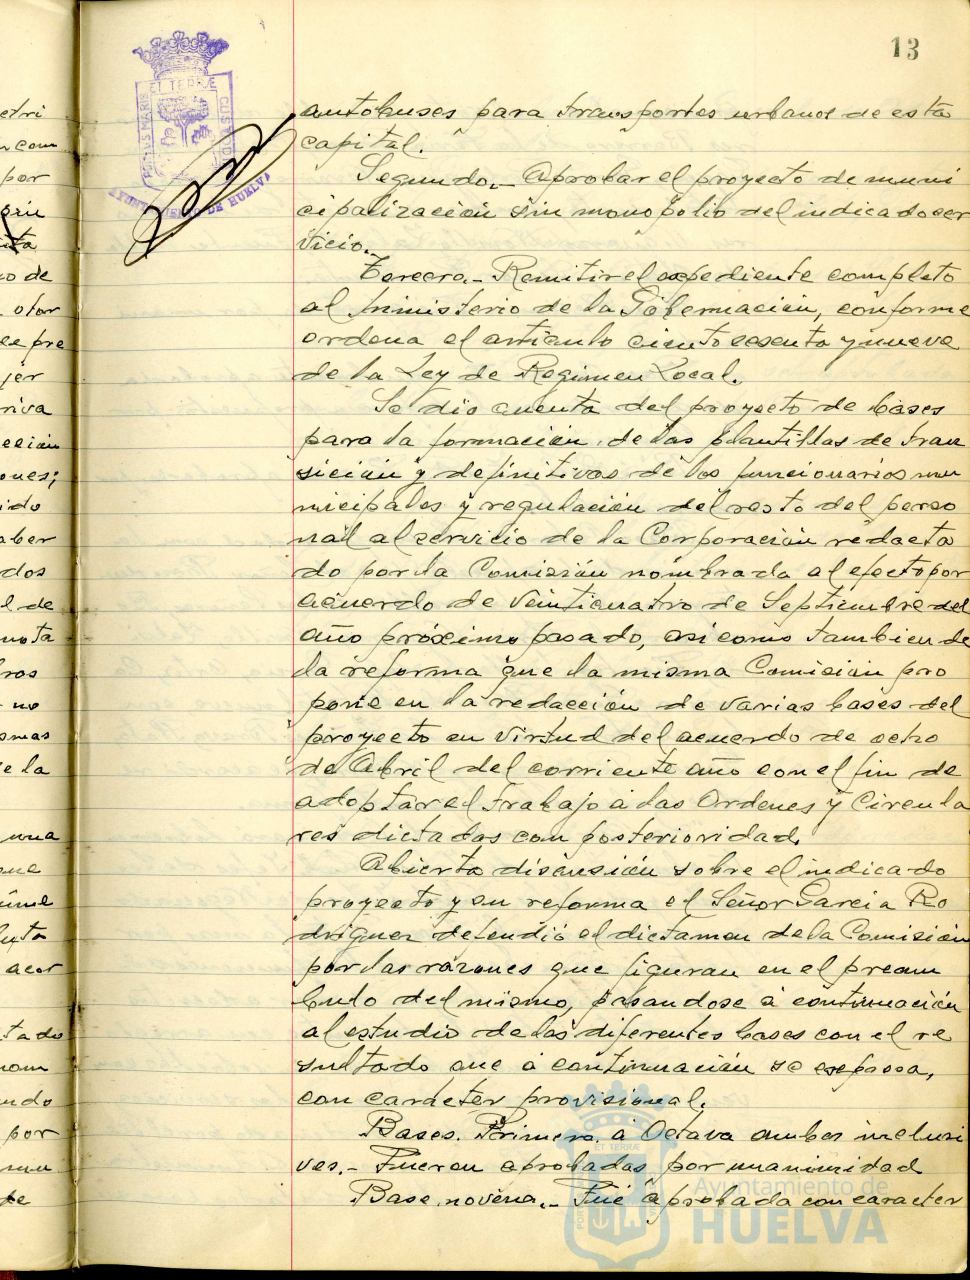 13
autobuses para transportes urbanos de esta
capital.
Segundo.- Aprobar el proyecto de muni
cipalización sin monopolio del indicado ser
vicio.
Tercero.- Remitir el expediente completo
al Ministerio de la Gobernación, conforme
ordena el artículo ciento sesenta y nueve
de la Ley de Regimen Local.
Se dio cuenta del proyecto de bases
para la formación de las plantillas de tran
sición y definitivas de los funcionarios mu
nicipales y regulación del resto del perso
nal al servicio de la Corporación redacta
do por la Comisión nombrada al efecto por
acuerdo de veinticuatro de Septiembre del
año próximo pasado, asi como tambien de
la reforma que la misma Comisión pro
pone en la redacción de varias bases del
proyecto en virtud del acuerdo de ocho
de Abril del corriente año con el fin de
adoptar el trabajo a las Ordenes y Circula
res dictadas con posterioridad.
Abierta discusión sobre el indicado
proyecto y su reforma el Señor Garcia Ro
driguez defendió el dictamen de la Comisión
por las razones que figuran en el pream
bulo del mismo, pasandose a continuación
al estudio de las diferentes bases con el re
sultado que a continuación se expresa,
con caracter provisional.
Bases. Primera a Octava ambas inclusi
ves.- Fueron aprobadas por unanimidad
Base novena.- Fué aprobada con caracter
ET TERRÆ
PORTUS MARIS
CUSTODIA
AYUNTAMIENTO DE HUELVA
etri
com
por
de
otor
pre
jer
riva
ección
ones;
ido
aber
dos
l de
nota
ros
no
smas
e la
una
que
acor
tado
nom
ndo
por
mu
de
Ayuntamiento de
HUELVA